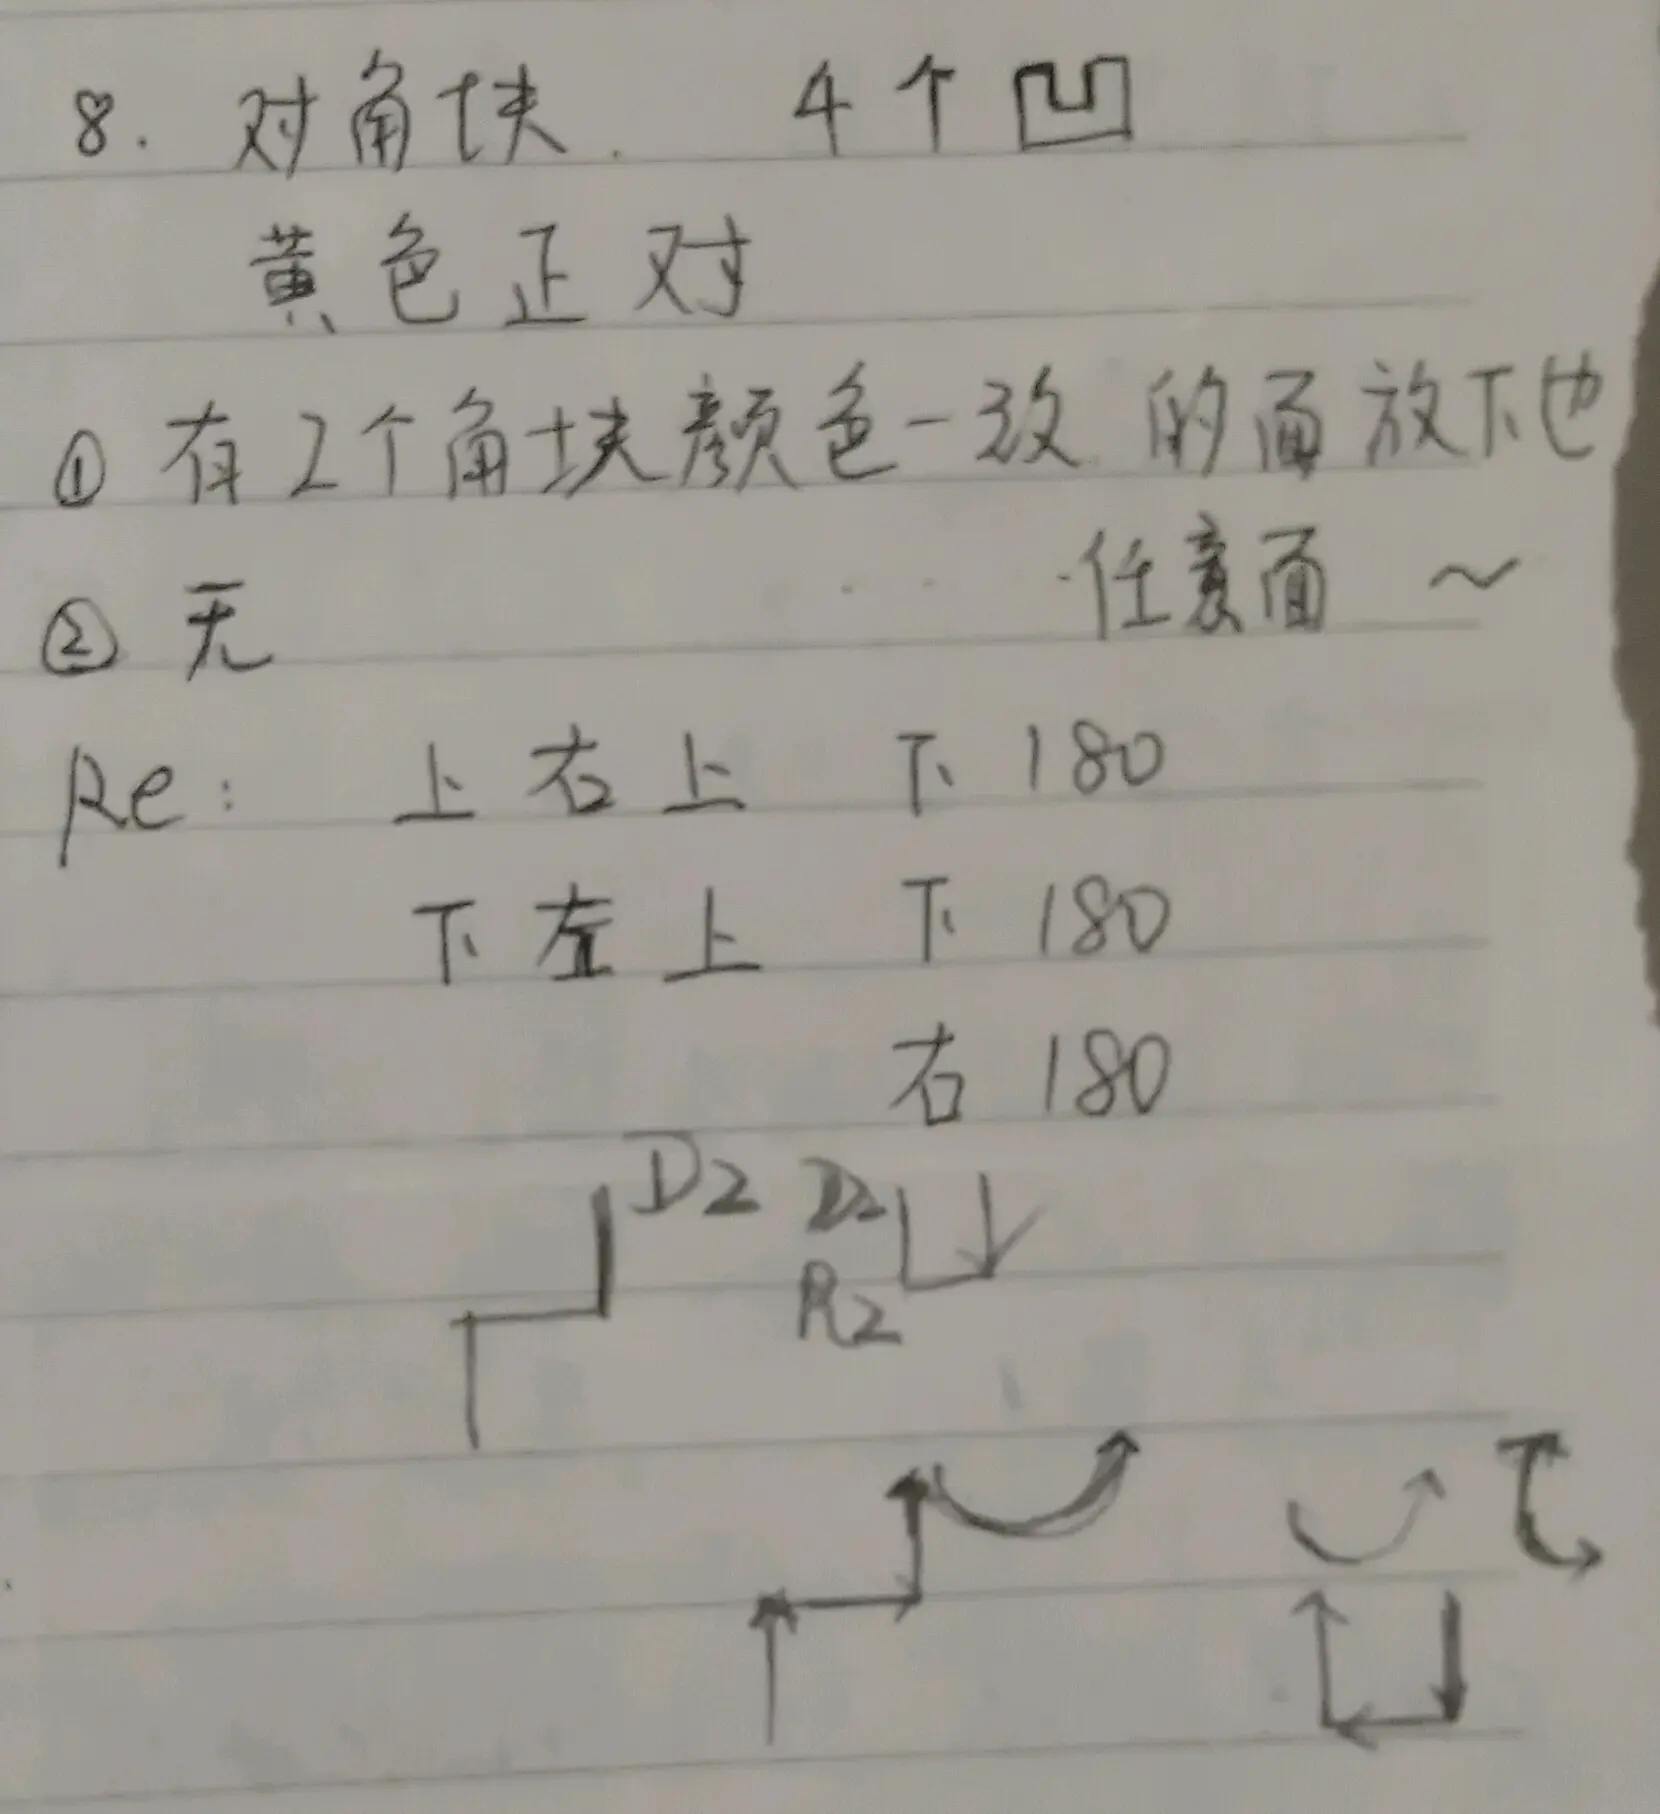 8. 对角块. 4个凹
黄色正对
① 有2个角块颜色一致的面放下也
② 无 任意面 ~
Re: 上右上 下180
下左上 下180
右180
D2 D2
R2